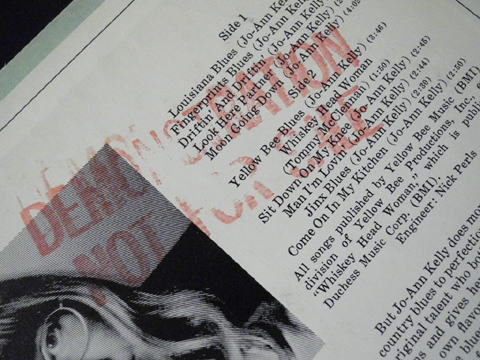 Side 1
Louisiana Blues (Jo-Ann Kelly)
Fingerprints Blues (Jo-Ann Kelly)
Driftin' And Driftin' (Jo-Ann Kelly)
Look Here Partner (Jo-Ann Kelly)
Moon Going Down (Jo Ann Kelly) (4:05)
Side 2
Yellow Bee Blues (Jo-Ann Kelly) (2:46)
Whiskey Head Woman
(Tommy McClennan) (1:50)
Sit Down On My Knee (Jo Ann Kelly) (2:45)
Man I'm Lovin' (Jo-Ann Kelly) (2:44)
Jinx Blues (Jo-Ann Kelly) (2:39)
Come On In My Kitchen (Jo-Ann Kelly) (2:50)
All songs published by Yellow Bee Music (BMI)
division of Yellow Bee Productions, Inc., e
"Whiskey Head Woman," which is publis
Duchess Music Corp. (BMI).
Engineer: Nick Perls
But Jo-Ann Kelly does mo
country blues to perfectio
original talent who bo
and gives he
own flavo
blue
DEMONSTRATION
NOT FOR SALE